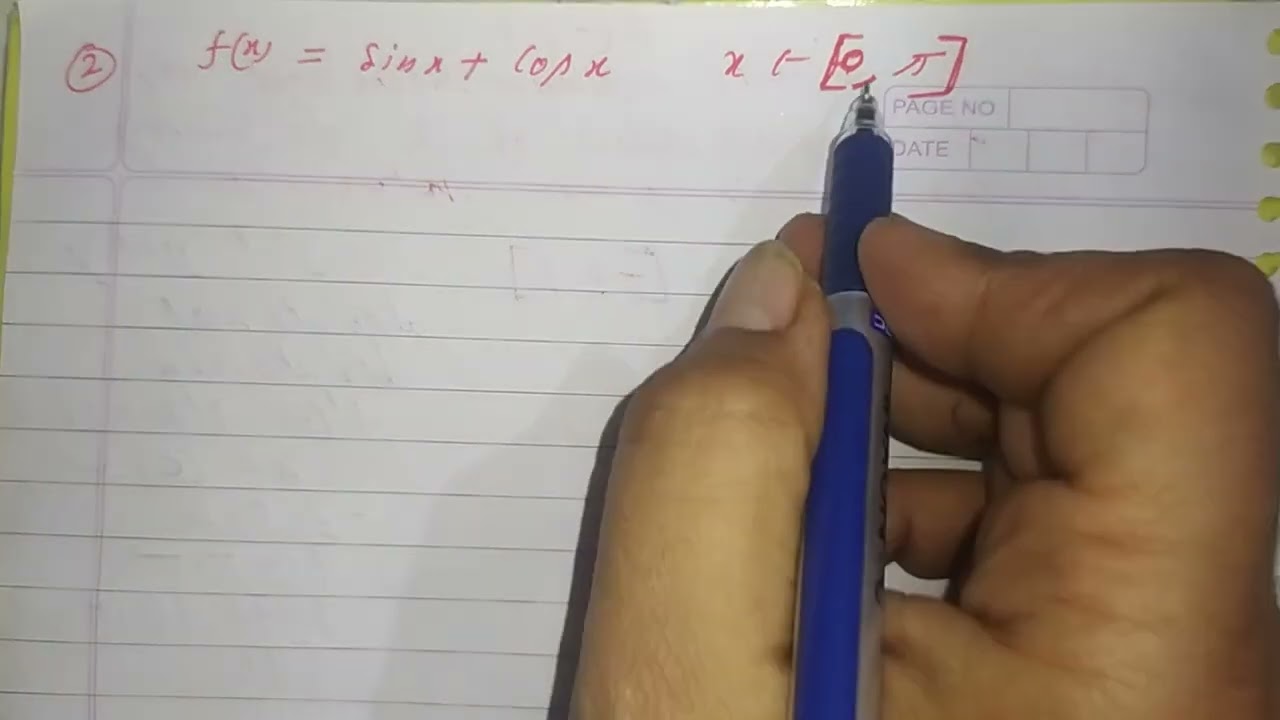 ② f(x) = sinx + cosx x ∈ [0, π]
PAGE NO
DATE